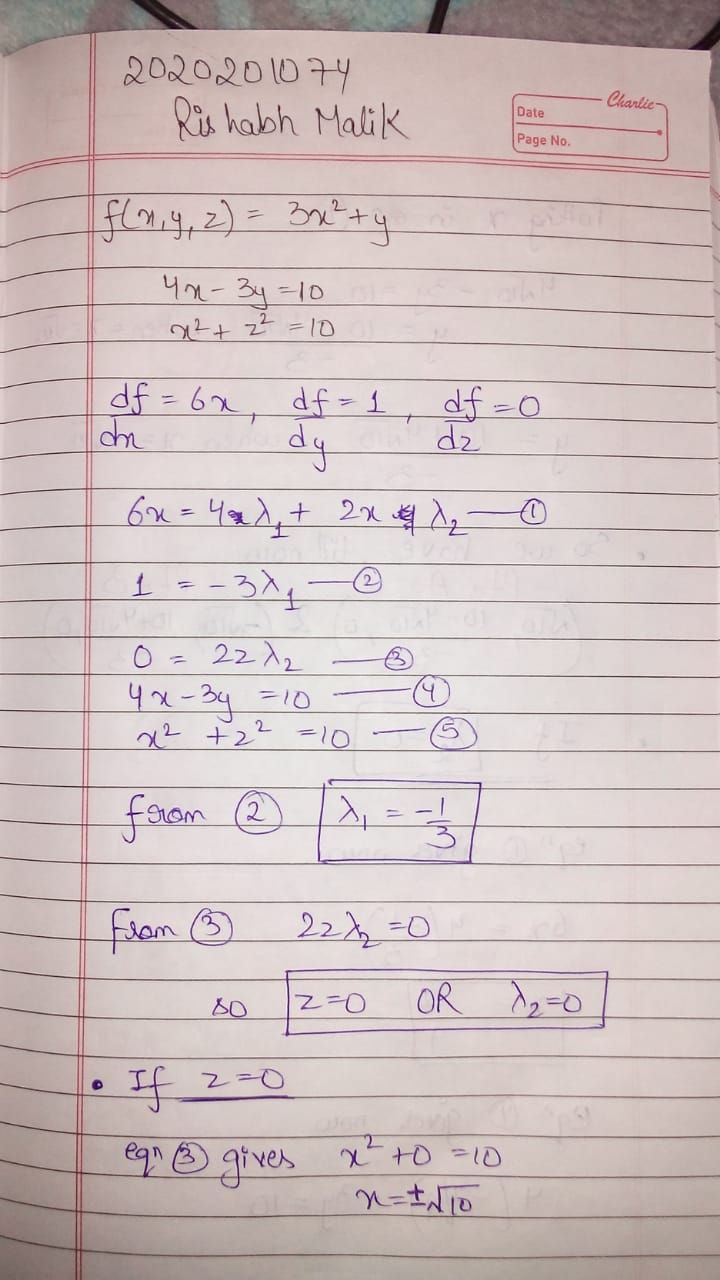 2020201074
Rishabh Malik
Charlie
Date
Page No.
f(x,y,z) = 3x²+y
4x-3y=10
x²+z²=10
df/dx = 6x, df/dy = 1, df/dz = 0
6x = 4λ₁ + 2x λ₂ —①
1 = -3λ₁ —②
0 = 2zλ₂ —③
4x-3y =10 —④
x² +z² =10 —⑤
from ② λ₁ = -1/3
from ③ 2zλ₂=0
so z=0 OR λ₂=0
• If z=0
eqn ③ gives x²+0=10
x=±√10